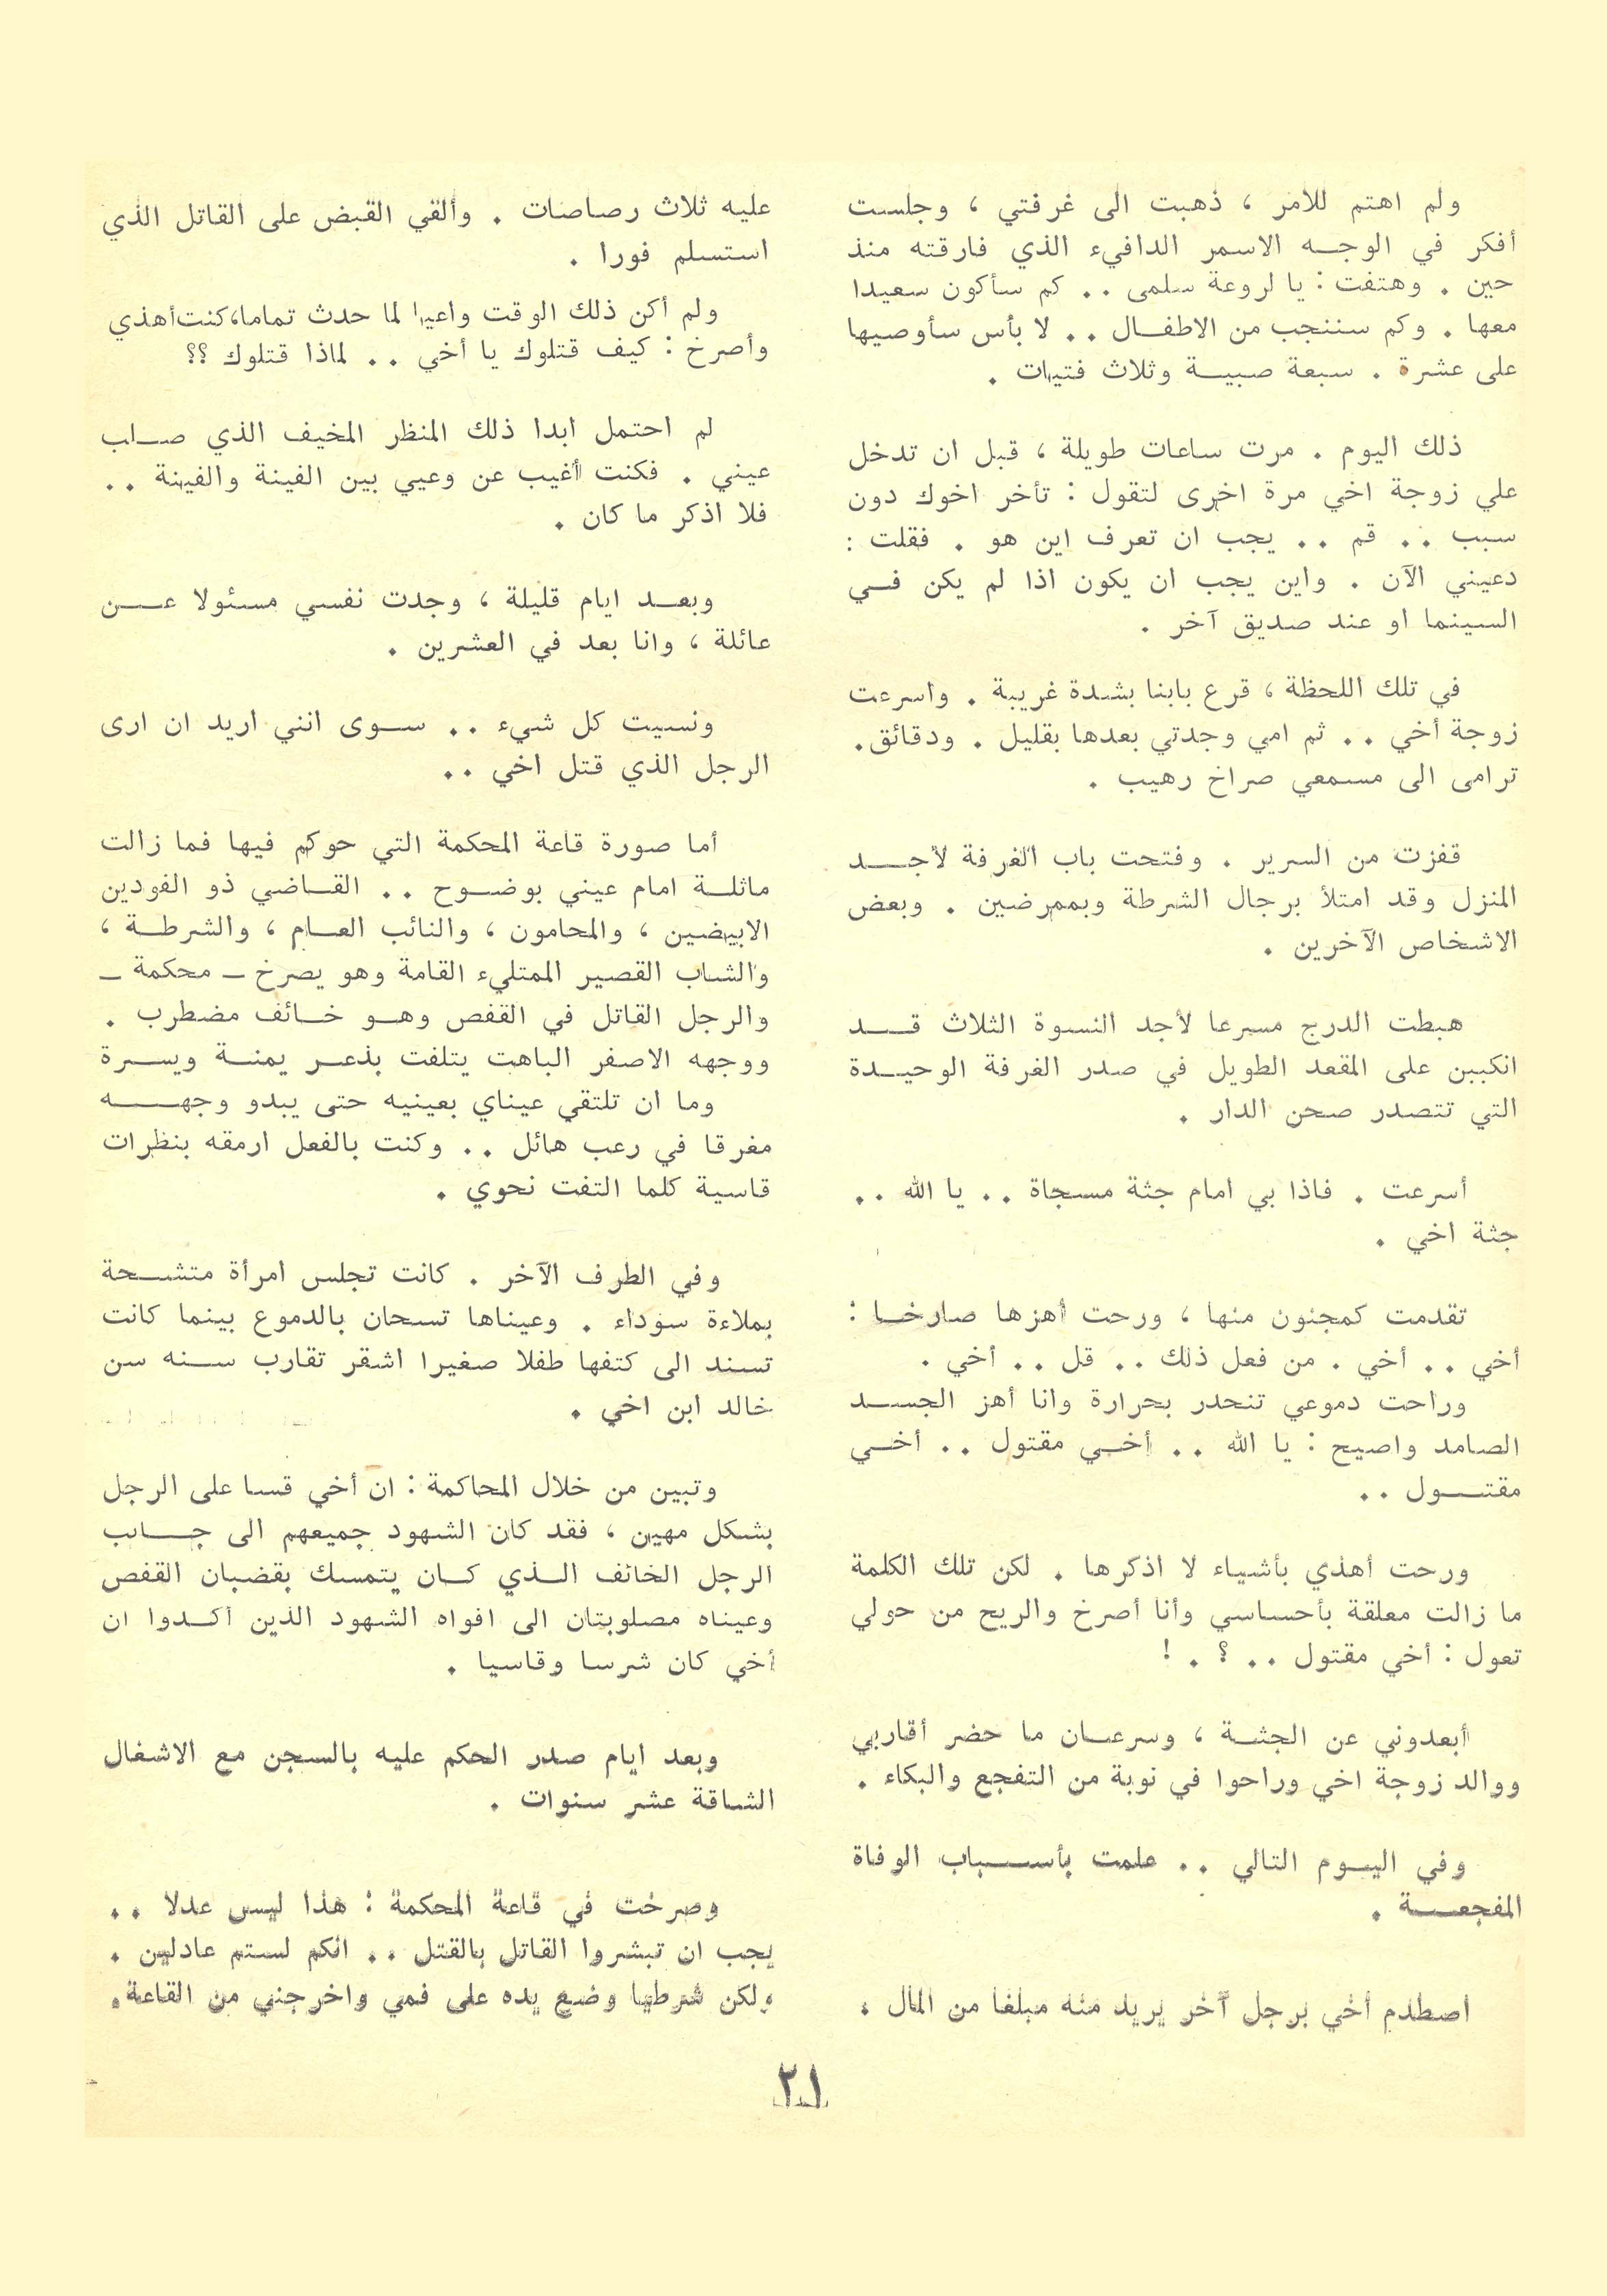 ولم اهتم للامر ، ذهبت الى غرفتي ، وجلست
أفكر في الوجه الاسمر الدافيء الذي فارقته منذ
حين . وهتفت : يا لروعة سلمى .. كم سأكون سعيدا
معها . وكم سننجب من الاطفال .. لا بأس سأوصيها
على عشرة . سبعة صبية وثلاث فتيات .
ذلك اليوم . مرت ساعات طويلة ، قبل ان تدخل
علي زوجة اخي مرة اخرى لتقول : تأخر اخوك دون
سبب .. قم .. يجب ان تعرف اين هو . فقلت :
دعيني الآن . واين يجب ان يكون اذا لم يكن في
السينما او عند صديق آخر .
في تلك اللحظة ، قرع بابنا بشدة غريبة . واسرعت
زوجة أخي .. ثم امي وجدتي بعدها بقليل . ودقائق.
ترامى الى مسمعي صراخ رهيب .
قفزت من السرير . وفتحت باب الغرفة لأجد
المنزل وقد امتلأ برجال الشرطة وبممرضين . وبعض
الاشخاص الآخرين .
هبطت الدرج مسرعا لأجد النسوة الثلاث قد
انكببن على المقعد الطويل في صدر الغرفة الوحيدة
التي تتصدر صحن الدار .
أسرعت . فاذا بي امام جثة مسجاة .. يا الله ..
جثة اخي .
تقدمت كمجنون منها ، ورحت أهزها صارخا :
أخي .. أخي . من فعل ذلك .. قل .. أخي .
وراحت دموعي تنحدر بحرارة وانا أهز الجسد
الصامد واصيح : يا الله .. أخي مقتول .. أخي
مقتول ..
ورحت أهذي بأشياء لا اذكرها . لكن تلك الكلمة
ما زالت معلقة بأحساسي وأنا أصرخ والريح من حولي
تعول : أخي مقتول .. ؟ . !
أبعدوني عن الجثة ، وسرعان ما حضر أقاربي
ووالد زوجة اخي وراحوا في نوبة من التفجع والبكاء .
وفي اليوم التالي .. علمت بأسباب الوفاة
المفجعة .
اصطدم أخي برجل آخر يريد منه مبلغا من المال ،
عليه ثلاث رصاصات . وألقي القبض على القاتل الذي
استسلم فورا .
ولم أكن ذلك الوقت واعيا لما حدث تماما،كنت أهذي
وأصرخ : كيف قتلوك يا أخي .. لماذا قتلوك ؟؟
لم احتمل ابدا ذلك المنظر المخيف الذي صلب
عيني . فكنت أغيب عن وعيي بين الفينة والفينة ..
فلا اذكر ما كان .
وبعد ايام قليلة ، وجدت نفسي مسئولا عن
عائلة ، وانا بعد في العشرين .
ونسيت كل شيء .. سوى انني اريد ان ارى
الرجل الذي قتل اخي ..
أما صورة قاعة المحكمة التي حوكم فيها فما زالت
ماثلة امام عيني بوضوح .. القاضي ذو الفودين
الابيضين ، والمحامون ، والنائب العام ، والشرطة ،
والشاب القصير الممتليء القامة وهو يصرخ – محكمة –
والرجل القاتل في القفص وهو خائف مضطرب .
ووجهه الاصفر الباهت يتلفت بذعر يمنة ويسرة
وما ان تلتقي عيناي بعينيه حتى يبدو وجهه
مغرقا في رعب هائل .. وكنت بالفعل ارمقه بنظرات
قاسية كلما التفت نحوي .
وفي الطرف الآخر . كانت تجلس امرأة متشحة
بملاءة سوداء . وعيناها تسحان بالدموع بينما كانت
تسند الى كتفها طفلا صغيرا اشقر تقارب سنه سن
خالد ابن اخي .
وتبين من خلال المحاكمة : ان أخي قسا على الرجل
بشكل مهين ، فقد كان الشهود جميعهم الى جانب
الرجل الخائف الذي كان يتمسك بقضبان القفص
وعيناه مصلوبتان الى افواه الشهود الذين أكدوا ان
أخي كان شرسا وقاسيا .
وبعد ايام صدر الحكم عليه بالسجن مع الاشغال
الشاقة عشر سنوات .
وصرخت في قاعة المحكمة : هذا ليس عدلا ..
يجب ان تبشروا القاتل بالقتل .. انكم لستم عادلين .
ولكن شرطيا وضع يده على فمي واخرجني من القاعة.
٢١